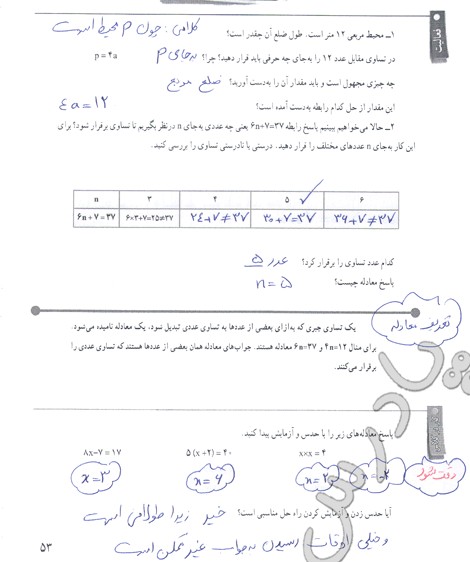 فعالیت
۱ــ محیط مربعی ۱۲ متر است. طول ضلع آن چقدر است؟ کلامی: چون p محیط است
در تساوی مقابل عدد ۱۲ را به‌جای چه حرفی باید قرار دهید؟ چرا؟ به جای p p = ۴a
چه چیزی مجهول است و باید مقدار آن را به‌دست آورید؟ ضلع مربع
این مقدار از حل کدام رابطه به‌دست آمده است؟ ۴a = ۱۲
۲ــ حالا می‌خواهیم ببینیم پاسخ رابطه ۶n+۷=۳۷ یعنی چه عددی به‌جای n درنظر بگیریم تا تساوی برقرار شود؟ برای
این کار به‌جای n عددهای مختلف را قرار دهید. درستی یا نادرستی تساوی را بررسی کنید.
n ۳ ۴ ۵ ✓ ۶
۶n+۷=۳۷ ۶×۳+۷=۲۵≠۳۷ ۲۴+۷≠۳۷ ۳۰+۷=۳۷ ۳۶+۷≠۳۷
کدام عدد تساوی را برقرار کرد؟ عدد ۵
پاسخ معادله چیست؟ n = ۵
تعریف معادله
یک تساوی جبری که به‌ازای بعضی از عددها به تساوی عددی تبدیل شود، یک معادله نامیده می‌شود
برای مثال ۴n=۱۲ و ۶n=۳۷ معادله هستند. جواب‌های معادله همان بعضی از عددها هستند که تساوی عددی را
برقرار می‌کنند.
پاسخ معادله‌های زیر را با حدس و آزمایش پیدا کنید.
۸x−۷=۱۷ ۵(x+۲)=۴۰ x×x=۴
x=۳ n=۶ n=۲ n=-۲ دقت شود
آیا حدس زدن و آزمایش کردن راه حل مناسبی است؟ خیر زیرا طولانی است
و خیلی اوقات رسیدن به جواب غیر ممکن است
۵۳